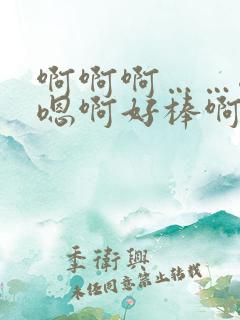 啊啊啊……
嗯啊好棒啊
季衛興
未经同意禁止转载